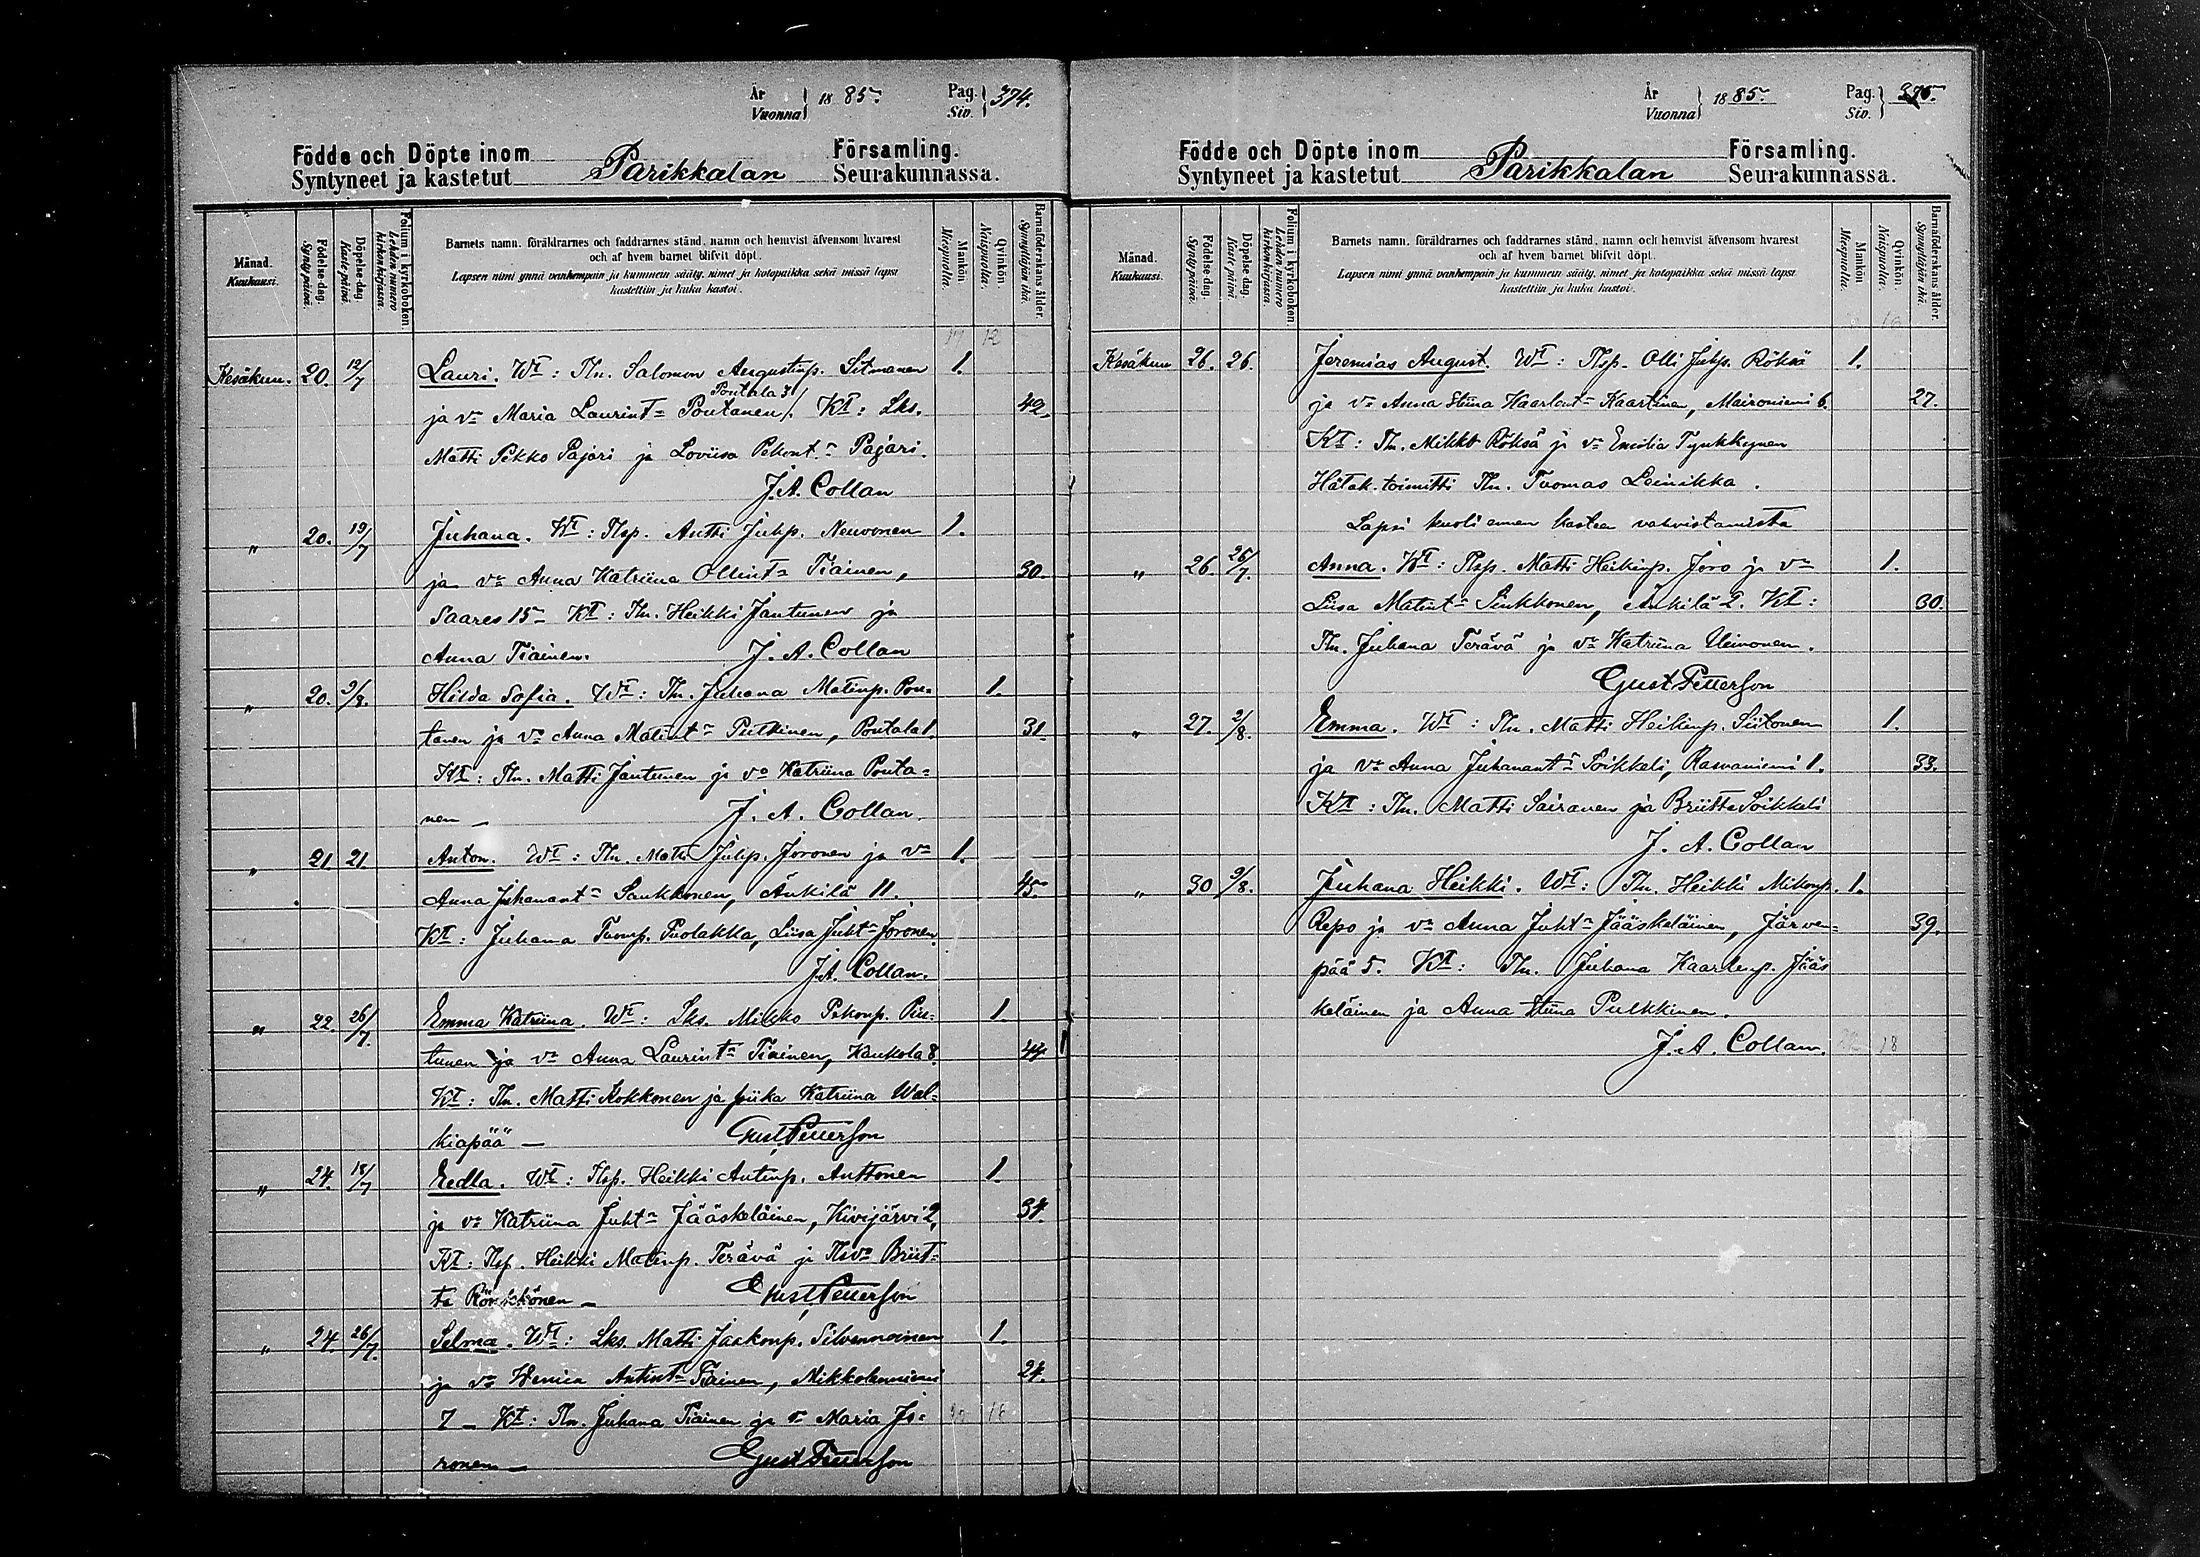 År
Vuonna } 1885. Pag.
Siv. } 374.
Födde och Döpte inom Parikkalan Församling.
Syntyneet ja kastetut Seurakunnassa.
Månad.
Kuukausi.
Födelse-dag.
Syntypäivä.
Döpelse-dag.
Kastepäivä.
Folium i kyrkoboken.
Lehden numero kirkonkirjassa.
Barnets namn, föräldrarnes och faddrarnes stånd, namn och hemvist äfvensom hvarest
och af hvem barnet blifvit döpt.
Lapsen nimi ynnä vanhempain ja kummein sääty, nimet ja kotopaikka sekä missä lapsi
kastettiin ja kuka kastoi.
Mankön.
Miespuolia.
Qvinkön.
Naispuolia.
Barnaföderskans ålder.
Synnyttäjän ikä.
Kesäkuu. 20. 12/7 Lauri. Wt: Tln. Salomon Augustinp. Sitmanen 1.
Poutala 3
ja vo Maria Laurint= Poutanen/. Kt: Lks. 42
Matti Pekko Pajari ja Loviisa Pekont= Pajari.
J. A. Collan
" 20. 19/7 Juhana. Wt: Tlsp. Antti Juhp. Neuvonen 1.
ja vo Anna Katriina Ollint= Tiainen, 30.
Saares 15 Kt: Tln. Heikki Jantunen ja
Anna Tiainen. J. A. Collan
" 20. 9/8. Hilda Sofia. Wt: Tln. Juhana Matinp. Pou= 1.
tanen ja vo Anna Matint= Pulkinen, Poutala 1. 31.
Kt: Tln. Matti Jantunen ja vo Katriina Pouta=
nen — J. A. Collan.
" 21. 21. Anton. Wt: Tln. Matti Juhp. Joronen ja vo 1.
Anna Juhanant= Sankkonen, Änkilä 11. 45.
Kt: Juhana Tuomp. Puolakka, Liisa Juht= Joronen.
J. A. Collan.
" 22. 26/7. Emma Katriina. Wt: Lks. Mikko Pekonp. Pu= 1.
tunen ja vo Anna Laurint= Tiainen, Kaukola 8. 44
Kt: Tln. Matti Kokkonen ja piika Katriina Wal=
kiapää — Gust. Petterson
" 24. 18/7 Eedla. Wt: Tlsp. Heikki Antinp. Anttonen 1.
ja vo Katriina Juht= Jääskeläinen, Kivijärvi 2, 34.
Kt: Tlsp. Heikki Matinp. Terävä ja Tlsvo Briit=
ta Rönkkönen — Gust. Petterson
" 24. 26/7. Selma. Wt: Lks. Matti Jaakonp. Silvennoinen 1.
ja vo Wenica Antint= Tiainen, Mikkolanniemi 24.
7 — Kt: Tln. Juhana Tiainen ja vo Maria Jo=
ronen — Gust Petterson
År
Vuonna } 1885. Pag.
Siv. } 375.
Födde och Döpte inom Parikkalan Församling.
Syntyneet ja kastetut Seurakunnassa.
Månad.
Kuukausi.
Födelse-dag.
Syntypäivä.
Döpelse-dag.
Kastepäivä.
Folium i kyrkoboken.
Lehden numero kirkonkirjassa.
Barnets namn, föräldrarnes och faddrarnes stånd, namn och hemvist äfvensom hvarest
och af hvem barnet blifvit döpt.
Lapsen nimi ynnä vanhempain ja kummein sääty, nimet ja kotopaikka sekä missä lapsi
kastettiin ja kuka kastoi.
Mankön.
Miespuolia.
Qvinkön.
Naispuolia.
Barnaföderskans ålder.
Synnyttäjän ikä.
Kesäkuu 26. 26. Jeremias August. Wt: Tlsp. Olli Juhp. Röksä 1.
ja vo Anna Stiina Kaarlent= Kaartinen, Maironiemi 6. 27.
Kt: Tln. Mikko Röksä ja vo Emilia Tynkkynen
Hätäk. toimitti Tln. Tuomas Leinikka.
Lapsi kuoli ennen kasteen vahvistamista
" 26. 26/7. Anna. Wt: Tlsp. Matti Heikinp. Joro ja vo 1.
Liisa Matint= Sinkkonen, Änkilä 2. Kt: 30.
Tln. Juhana Terävä ja vo Katriina Uimonen.
Gust Petterson
" 27. 2/8. Emma. Wt: Tln. Matti Heikinp. Siitonen 1.
ja vo Anna Juhanant= Soikkeli, Rasvaniemi 1. 33.
Kt: Tln. Matti Sairanen ja Briitta Soikkeli
J. A. Collan
" 30 9/8. Juhana Heikki. Wt: Tln. Heikki Mikonp. 1.
Repo ja vo Anna Juht= Jääskeläinen, Järven= 39.
pää 5. Kt: Tln. Juhana Kaarlenp. Jääs
keläinen ja Anna Stiina Pulkkinen.
J. A. Collan.